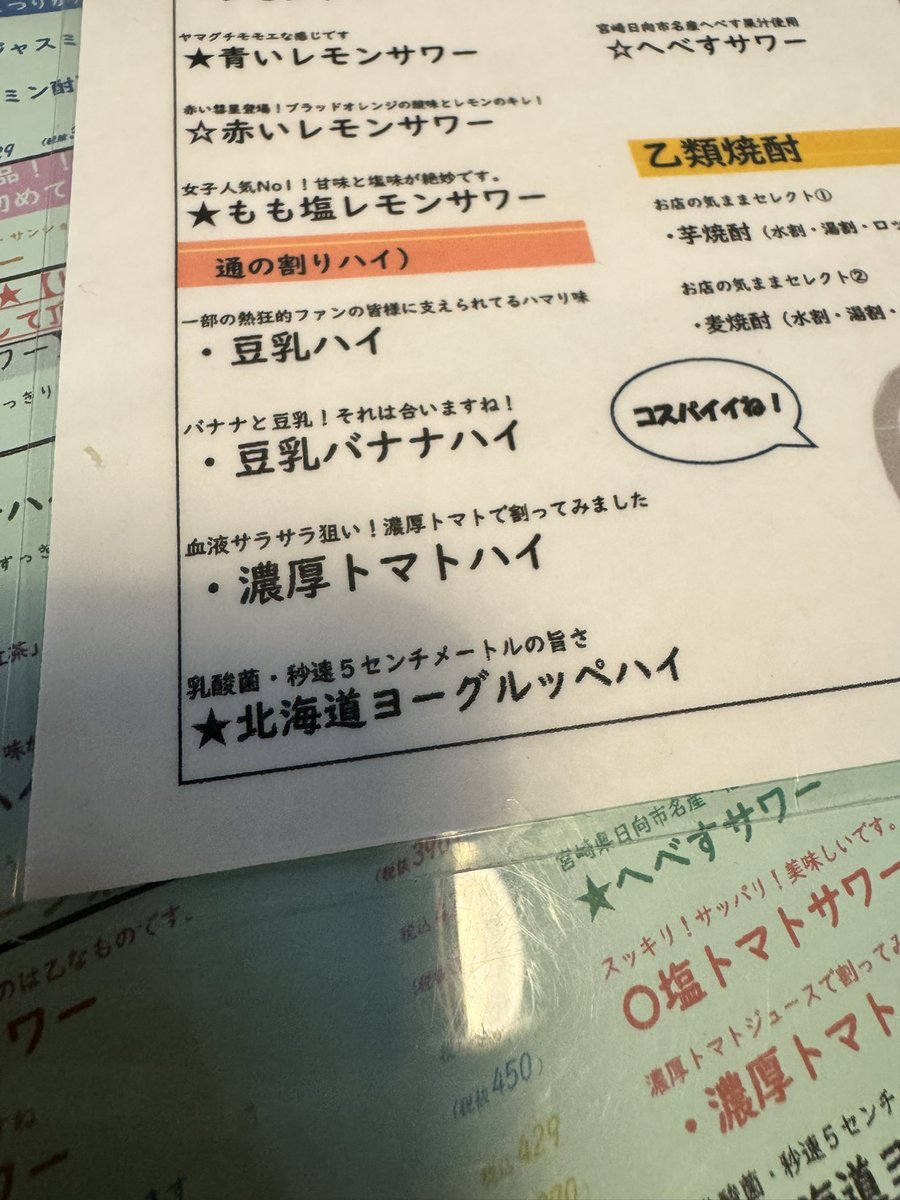 ヤマグチモモエな感じです
★青いレモンサワー
赤い彗星登場！ブラッドオレンジの酸味とレモンのキレ！
☆赤いレモンサワー
女子人気No1！甘味と塩味が絶妙です。
★もも塩レモンサワー
通の割りハイ）
一部の熱狂的ファンの皆様に支えられてるハマり味
・豆乳ハイ
バナナと豆乳！それは合いますね！
・豆乳バナナハイ
血液サラサラ狙い！濃厚トマトで割ってみました
・濃厚トマトハイ
乳酸菌・秒速５センチメートルの旨さ
★北海道ヨーグルッペハイ
宮崎日向市名産へべす果汁使用
☆へべすサワー
乙類焼酎
お店の気ままセレクト①
・芋焼酎（水割・湯割・ロッ
お店の気ままセレクト②
・麦焼酎（水割・湯割・
コスパイイね！
宮崎県日向市名産・
★へべすサワー
スッキリ！サッパリ！美味しいです。
〇塩トマトサワー
濃厚トマトジュースで割ってみ
・濃厚トマト
乳酸菌・秒速５センチ
のは乙なものです。
ワー
(税抜390)
(税抜450)
税込429